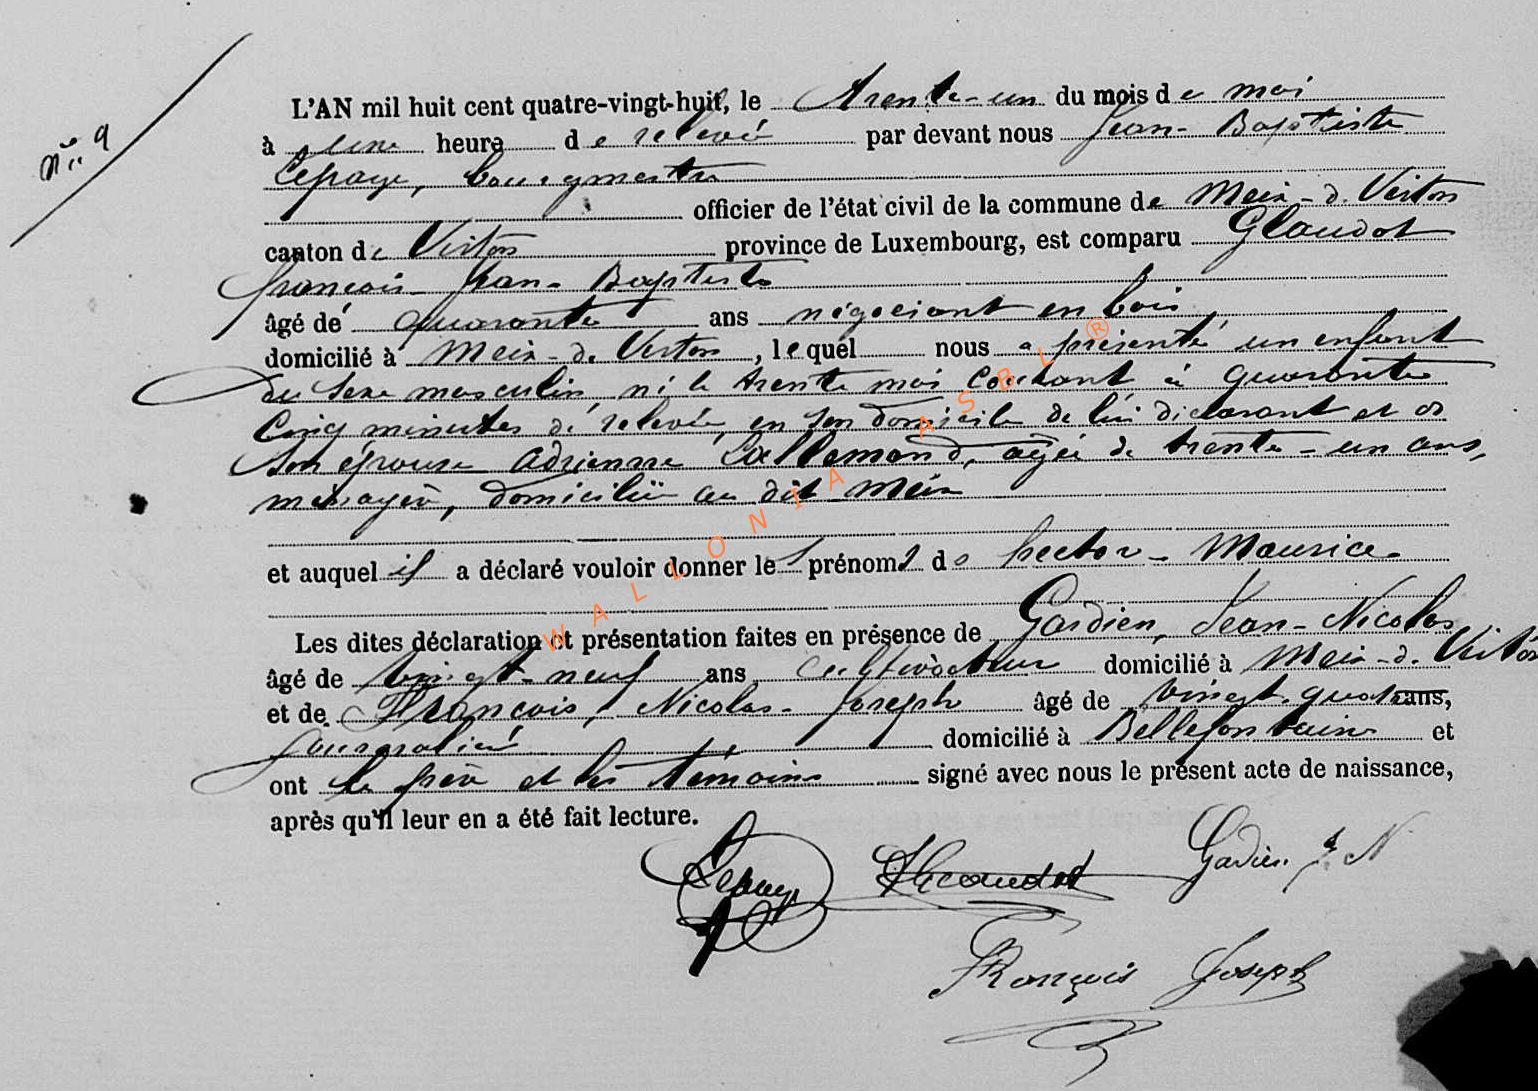 N° 9
L'AN mil huit cent quatre-vingt-huit, le Trente-un du mois de mai
à une heure de relevée par devant nous Jean-Baptiste
Lepage, bourgmestre
officier de l'état civil de la commune de Meix-d. Virton
canton de Virton province de Luxembourg, est comparu Glaudot
françois-Jean-Baptiste
âgé de quarante ans négociant en bois
domicilié à Meix-d. Virton, lequel nous a présenté un enfant
du sexe masculin, né le trente mai courant à quarante
cinq minutes de relevée, en son domicile de lui déclarant et de
son épouse Adrienne Lallemand, agée de trente-un ans,
ménagère, domiciliée au dit Meix
et auquel il a déclaré vouloir donner les prénoms de hector-Maurice
Les dites déclaration et présentation faites en présence de Gardien, Jean-Nicolas
âgé de vingt-neuf ans cultivateur domicilié à Meix-d. Virton
et de François, Nicolas-Joseph âgé de vingt-quatr ans,
journalier domicilié à Bellefontaine et
ont le père et les témoins signé avec nous le présent acte de naissance,
après qu'il leur en a été fait lecture.
Lepage Glaudot Gardien J. N
François Joseph
WALLONIA ASBL ®